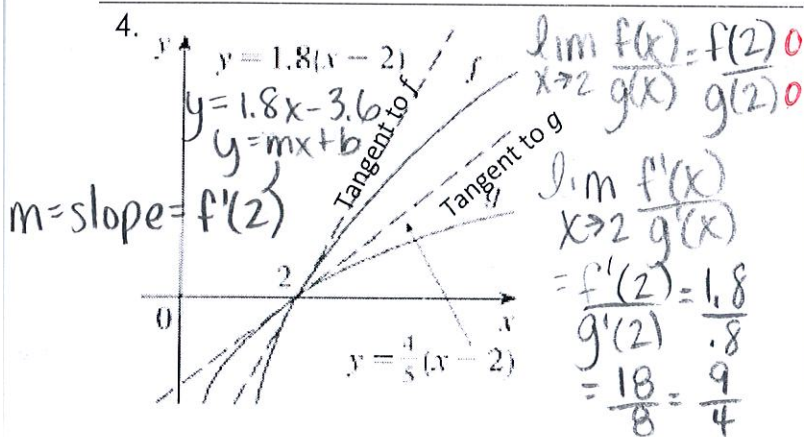 4.
y
y = 1.8(x − 2)
f
y=1.8x-3.6
y=mx+b
m=slope=f'(2)
Tangent to f
Tangent to g
g
2
0
x
y = 4/5 (x − 2)
lim x→2 f(x)/g(x) = f(2)/g(2) 0 0
lim x→2 f'(x)/g'(x)
= f'(2)/g'(2) = 1.8/.8
= 18/8 = 9/4